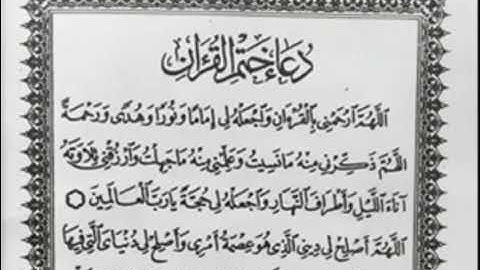 دُعَاءُ خَتْمِ الْقُرْآنِ
اللَّهُمَّ ارْحَمْنِي بِالْقُرْءَانِ وَاجْعَلْهُ لِي إِمَامًا وَنُورًا وَهُدًى وَرَحْمَةً
اللَّهُمَّ ذَكِّرْنِي مِنْهُ مَا نَسِيتُ وَعَلِّمْنِي مِنْهُ مَا جَهِلْتُ وَارْزُقْنِي تِلَاوَتَهُ
آنَاءَ اللَّيْلِ وَأَطْرَافَ النَّهَارِ وَاجْعَلْهُ لِي حُجَّةً يَا رَبَّ الْعَالَمِينَ
اللَّهُمَّ أَصْلِحْ لِي دِينِي الَّذِي هُوَ عِصْمَةُ أَمْرِي وَأَصْلِحْ لِي دُنْيَايَ الَّتِي فِيهَا